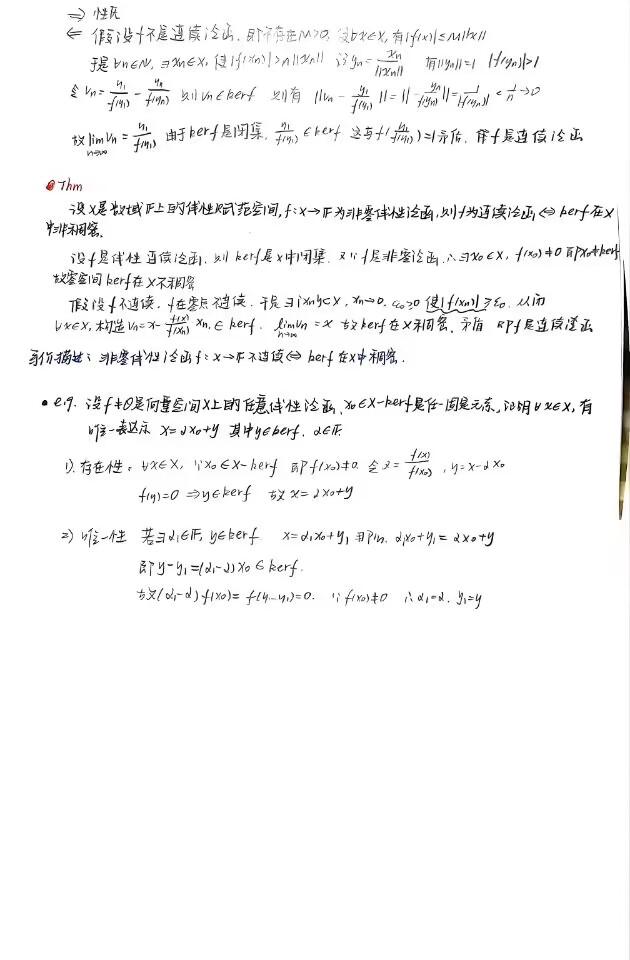 ⇒ 性质
⇐ 假设f不是连续泛函, 即不存在M>0, 使∀x∈X, 有|f(x)|≤M||x||
于是∀n∈N, ∃xn∈X, 使|f(xn)|>n||xn|| 记yn=xn/||xn|| 有||yn||=1 |f(yn)|>1
令vn=y1/f(y1)-yn/f(yn) 则vn∈kerf 则有 ||vn-y1/f(y1)||=||-yn/f(yn)||=1/|f(yn)|<1/n→0
故lim n→∞ vn=y1/f(y1) 由于kerf是闭集, y1/f(y1)∈kerf 这与f(y1/f(y1))=1矛盾, 即f是连续泛函
Thm
设X是数域F上的线性赋范空间, f:X→F为非零线性泛函, 则f为连续泛函⇔kerf在X
中非稠密.
设f是线性连续泛函, 则kerf是X中闭集. 又∵f是非零泛函, ∴∃x0∈X, f(x0)≠0 即x0∉kerf
故零空间kerf在X不稠密
假设f不连续, f在零点不连续, 于是∃{xn}⊂X, xn→0, ε0>0 使|f(xn)|≥ε0, 从而
∀x∈X, 构造vn=x-f(x)/f(xn) xn, ∈kerf. lim n→∞ vn=x 故kerf在X稠密, 矛盾 即f是连续泛函
等价描述: 非零线性泛函f:X→F不连续⇔kerf在X中稠密.
• e.g. 设f≠θ是向量空间X上的任意线性泛函, x0∈X-kerf是任一固定元素, 证明∀x∈X, 有
唯一表达示 x=αx0+y 其中y∈kerf, α∈F.
1). 存在性: ∀x∈X, ∵x0∈X-kerf 即f(x0)≠0. 令α=f(x)/f(x0), y=x-αx0
f(y)=0 ⇒y∈kerf 故x=αx0+y
2) 唯一性 若∃α1∈F, y∈kerf x=α1x0+y1 则 α1x0+y1=αx0+y
即y-y1=(α1-α)x0∈kerf.
故(α1-α)f(x0)=f(y-y1)=0. ∵f(x0)≠0 ∴α1=α. y1=y